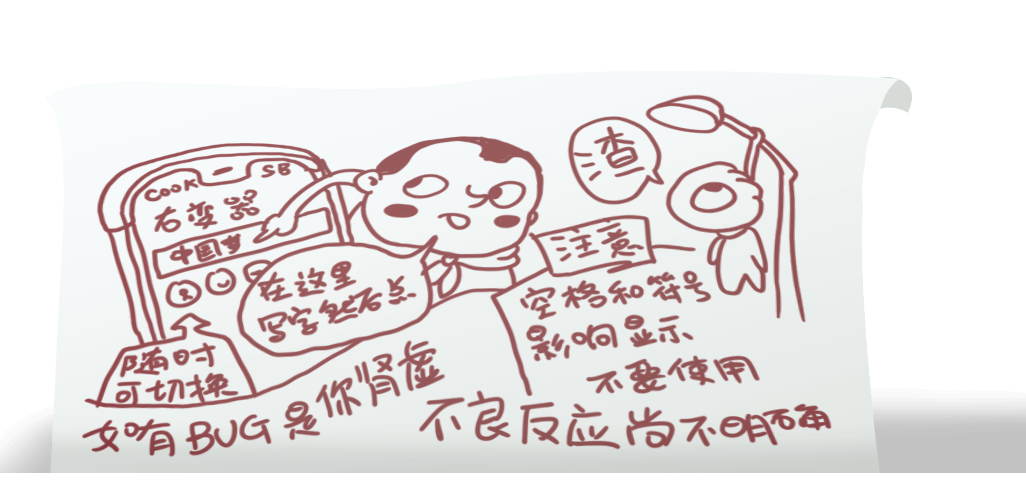 COOK SB
右变器
中国梦
在这里
写字然后点
随时
可切换
查
注意
空格和符号
影响显示
不要使用
如有BUG是你肾虚
不良反应尚不明确